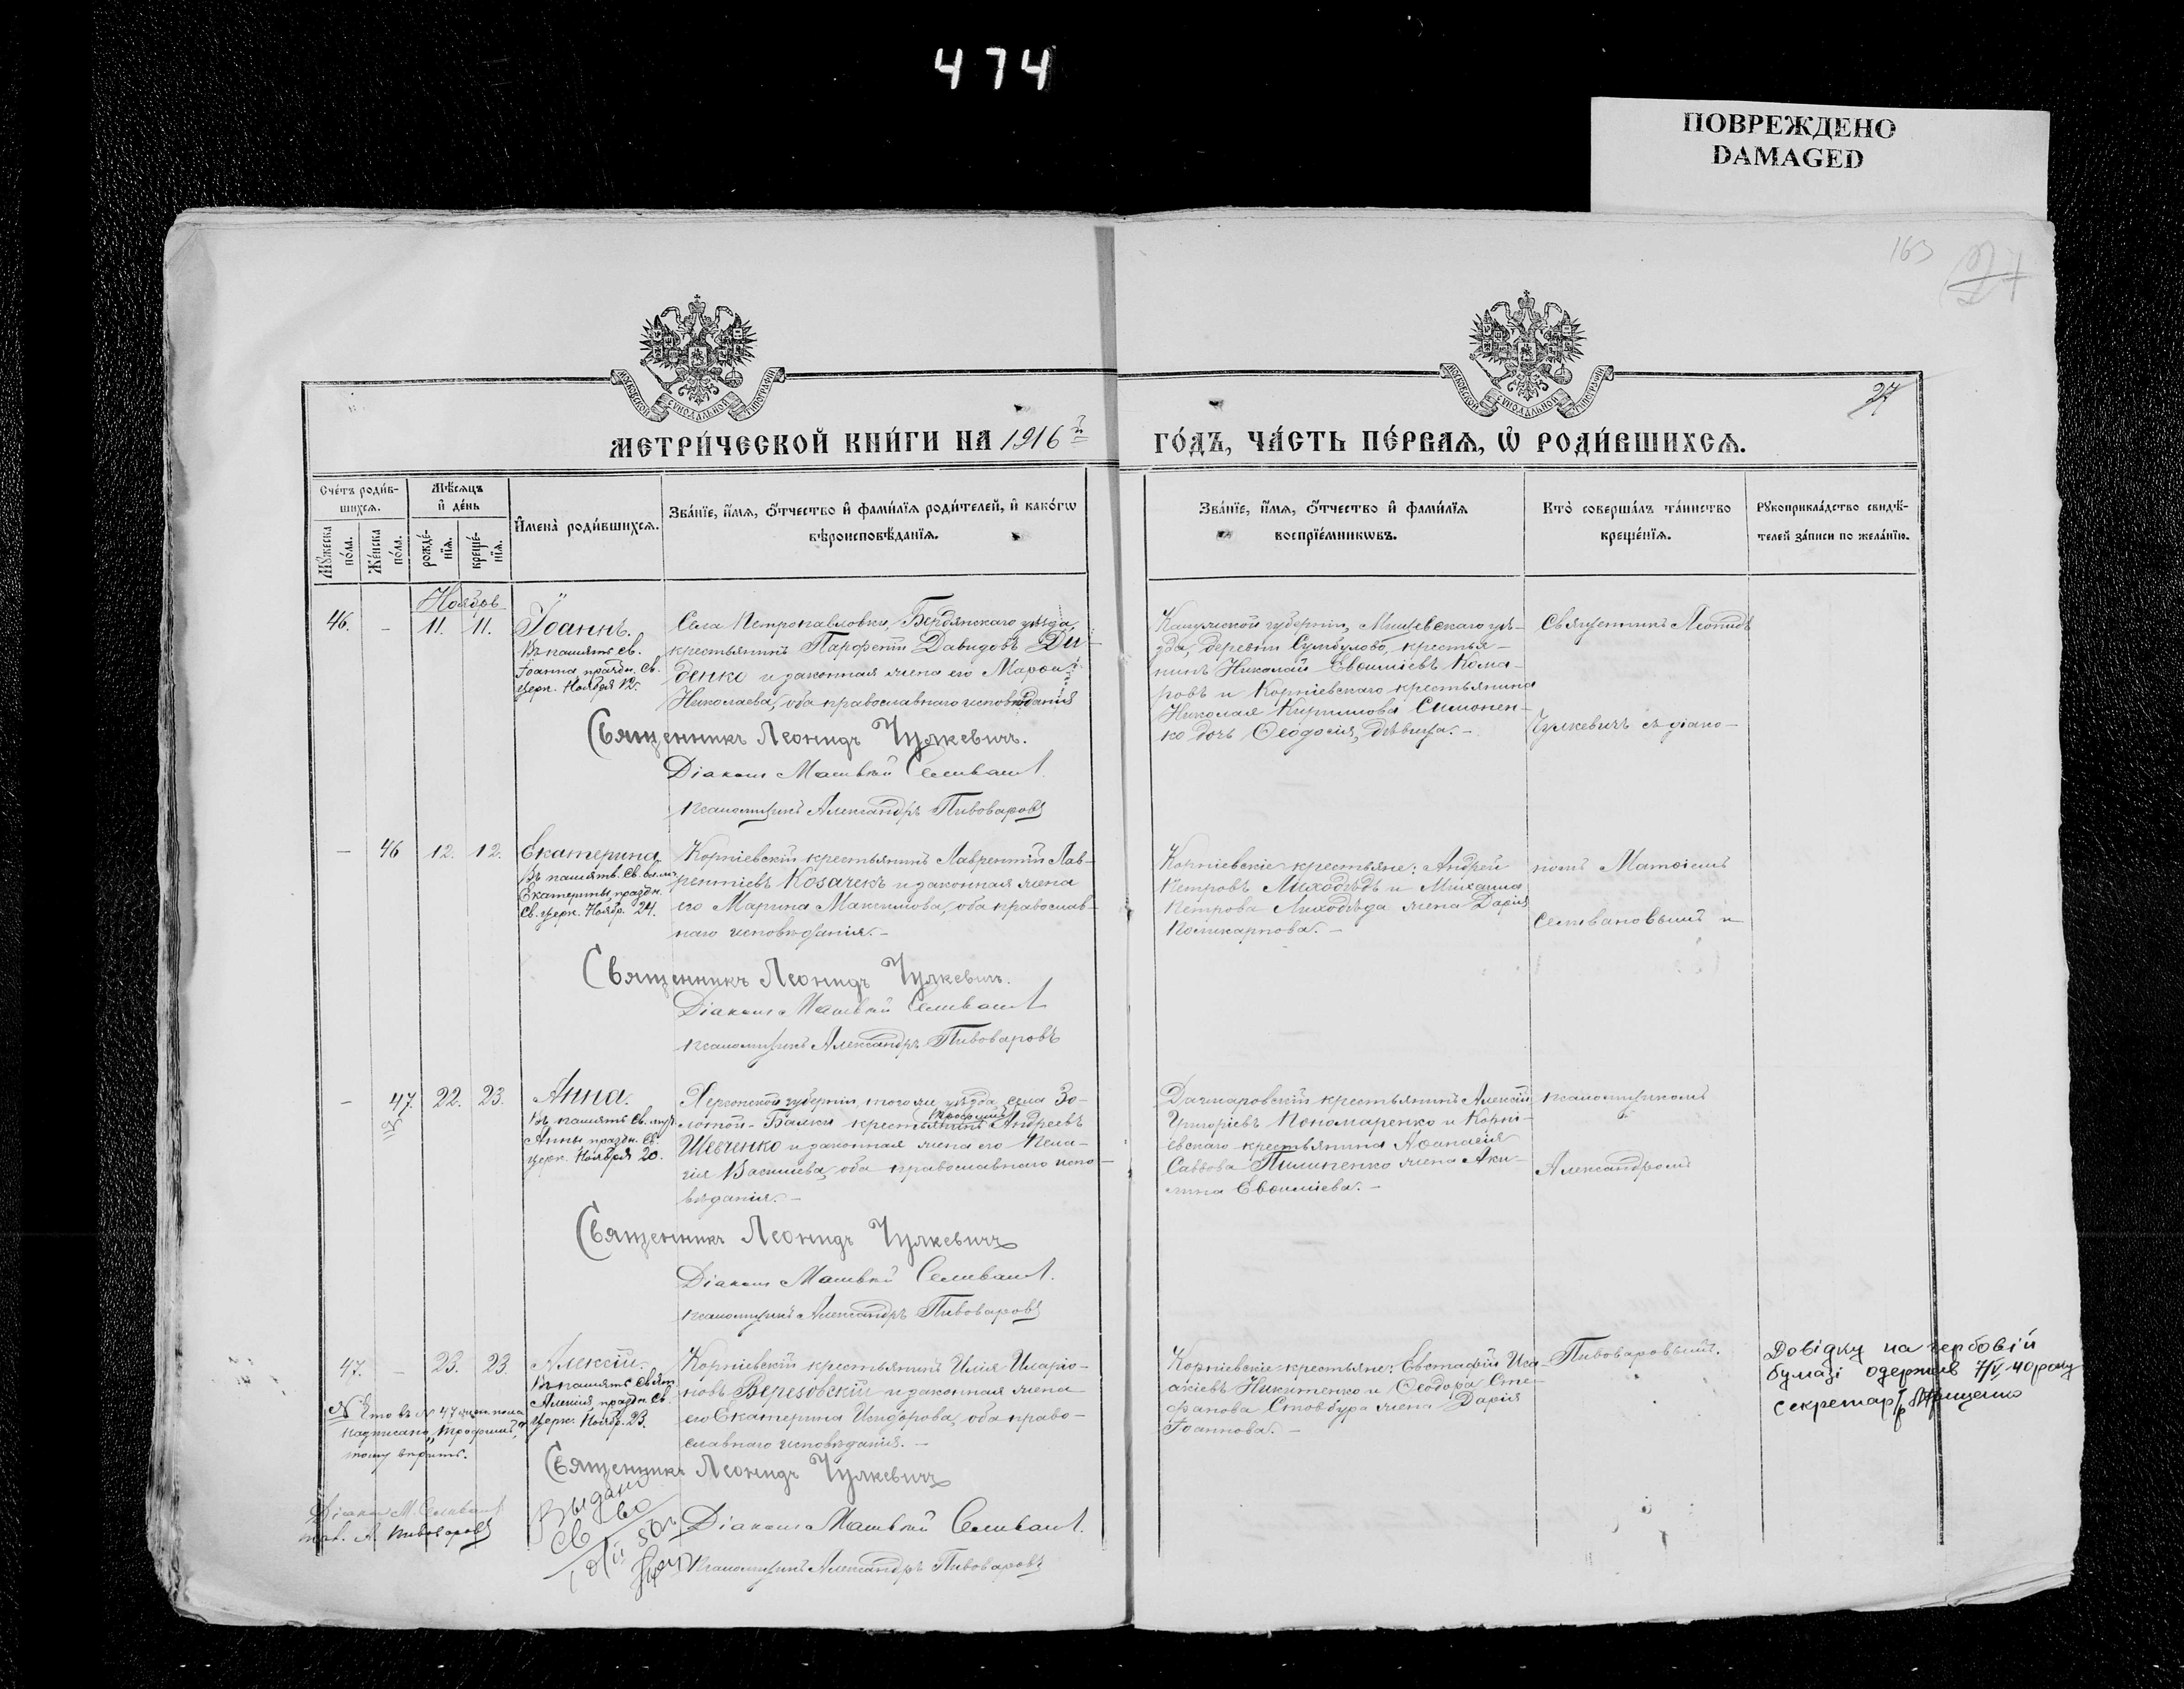 474
ПОВРЕЖДЕНО
DAMAGED
163
27
27
МОСКОВСКОЙ СѴНОДАЛЬНОЙ ТИПОГРАФІИ
МОСКОВСКОЙ СѴНОДАЛЬНОЙ ТИПОГРАФІИ
МЕТРИ́ЧЕСКОЙ КНИ́ГИ НА 1916й ГО́ДЪ, ЧА́СТЬ ПЕ́РВАѦ, Ѡ҆ РОДИ́ВШИХСѦ.
Сче́тъ роди́в-
шихсѧ.
Мѣ́сѧцъ
и҆ де́нь
Мꙋ́жеска
по́ла.
Же́нска
по́ла.
рожде́-
нїѧ.
креще́-
нїѧ.
И҆мена̀ роди́вшихсѧ.
Зва́нїе, и҆́мѧ, ѻ҆́тчество и҆ фами́лїѧ роди́телей, и҆ како́гѡ
вѣроисповѣ́данїѧ.
Зва́нїе, и҆́мѧ, ѻ҆́тчество и҆ фами́лїѧ
воспрїе́мникѡвъ.
Кто̀ соверша́лъ та́инство
креще́нїѧ.
Рꙋкоприкла́дство свидѣ́-
телей за́писи по жела́нїю.
Ноябрь
46. - 11. 11. Іоаннъ.
Въ память св.
Іоанна, праздн. св.
церк. Ноября 12.
Села Петропавловки, Бердянскаго уѣзда,
крестьянинъ Парфеній Давидовъ Ди-
денко и законная жена его Марфа
Николаева, оба православнаго исповѣданія
Священникъ Леонидъ Чулкевичъ.
Діаконъ Матвѣй Селиван
Псаломщикъ Александръ Пивоваровъ
Калужской губерніи, Мещевскаго уѣ-
зда, деревни Сумбулово, крестья-
нинъ Николай Евѳиміевъ Кома-
ровъ и Корніевскаго крестьянина
Николая Кириллова Симонен-
ко дочь Ѳеодосія, дѣвица. -
Священникъ Леонидъ
Чулкевичъ съ діако-
- 46 12. 12. Екатерина
Въ память св. вел.
Екатерины, праздн.
св. церк. Ноябр. 24.
Корніевскій крестьянинъ Лаврентій Лав-
рентіевъ Козачекъ и законная жена
его Марина Максимова, оба православ-
наго исповѣданія. -
Священникъ Леонидъ Чулкевичъ.
Діаконъ Матвѣй Селиван
Псаломщикъ Александръ Пивоваровъ
Корніевскіе крестьяне: Андрей
Петровъ Лиходѣдъ и Михаила
Петрова Лиходѣда жена Дарія
Поликарпова. -
номъ Матѳіемъ
Селивановымъ и
- 47. 22. 23. Анна.
Въ память св.
Анны, праздн. св.
церк. Ноября 20.
Херсонской губерніи, того же уѣзда, села Зо-
лотой-Балки крестьянинъ Трофимъ Андреевъ
Шевченко и законная жена его Пела-
гія Васильева, оба православнаго испо-
вѣданія. -
Священникъ Леонидъ Чулкевичъ
Діаконъ Матвѣй Селиван
Псаломщикъ Александръ Пивоваровъ
крестьянинъ Алексій
Григоріевъ Пономаренко и Корні-
евскаго крестьянина Аѳанасія
Саввова Пилипенко жена Аки-
лина Евѳиміева. -
псаломщикомъ
Александромъ
47. - 23. 23. Алексій.
Въ память св.
Алексія, праздн. св.
церк. Ноябр. 23.
Корніевскій крестьянинъ Илія Иларіо-
новъ Верезовскій и законная жена
его Екатерина Исидорова, оба право-
славнаго исповѣданія. -
Священникъ Леонидъ Чулкевичъ
Діаконъ Матвѣй Селиван
Псаломщикъ Александръ Пивоваровъ
Корніевскіе крестьяне: Евстафій Иса-
акіевъ Никитенко и Ѳеодора Сте-
фанова Стовбура жена Дарія
Іоаннова. -
Пивоваровымъ.
Довідку на гербовій
бумазі одержав 7/IV 40 року
Секретар
Что въ № 47 жен. пола
надписано "Трофимъ,"
тому вѣрить.
Діаконъ М. Селиван
А. Пивоваровъ
Выдано